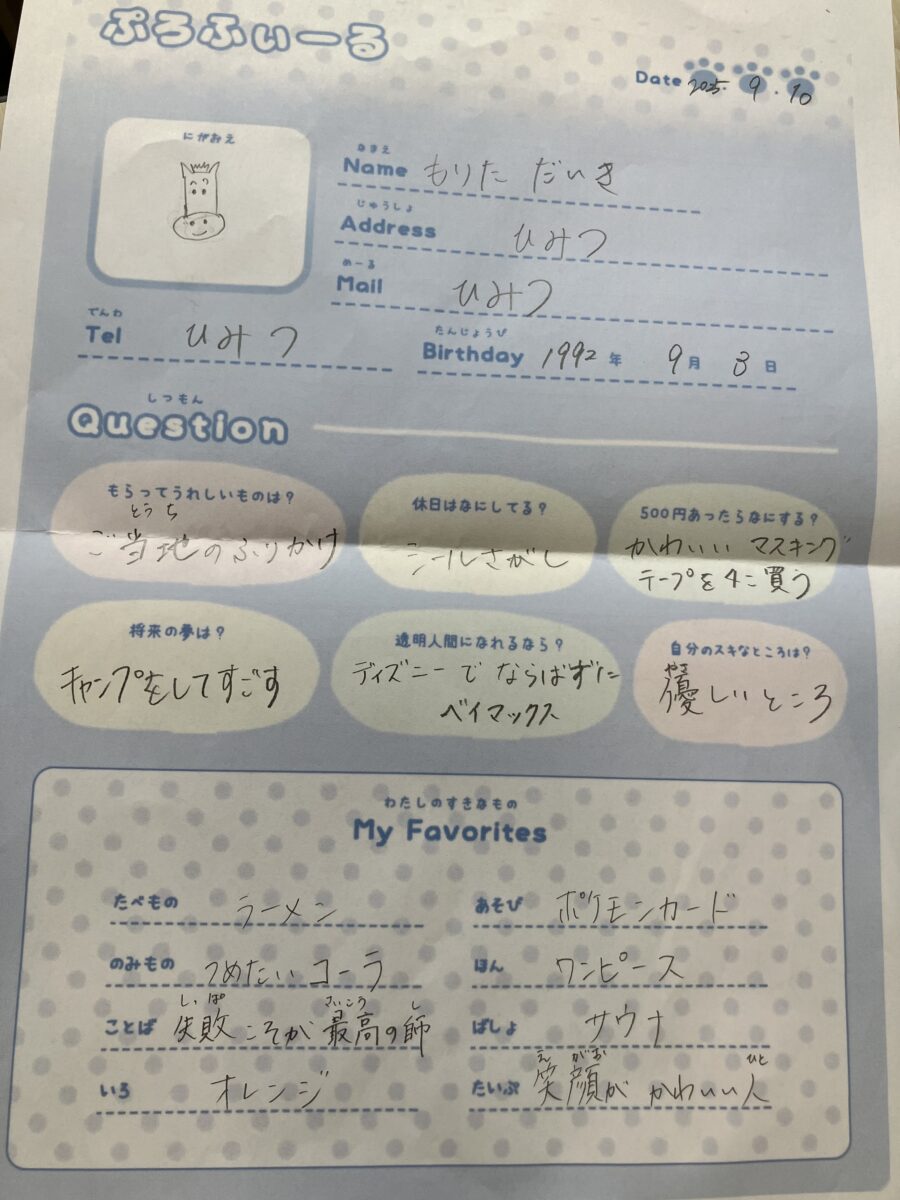 ぷろふぃーる
Date 2025. 9. 10
にがおえ
なまえ
Name もりた だいき
じゅうしょ
Address ひみつ
めーる
Mail ひみつ
でんわ
Tel ひみつ
たんじょうび
Birthday 1992 年 9 月 3 日
しつもん
Question
もらってうれしいものは?
とうち
ご当地のふりかけ
休日はなにしてる?
シールさがし
500円あったらなにする?
かわいい マスキング
テープを4こ買う
将来の夢は?
キャンプをしてすごす
透明人間になれるなら?
ディズニーで ならばずに
ベイマックス
自分のスキなところは?
やさ
優しいところ
わたしのすきなもの
My Favorites
たべもの ラーメン
あそび ポケモンカード
のみもの つめたい コーラ
ほん ワンピース
しっぱ さいこう し
ことば 失敗こそが 最高の師
ばしょ サウナ
いろ オレンジ
え がお ひと
たいぷ 笑顔が かわいい人